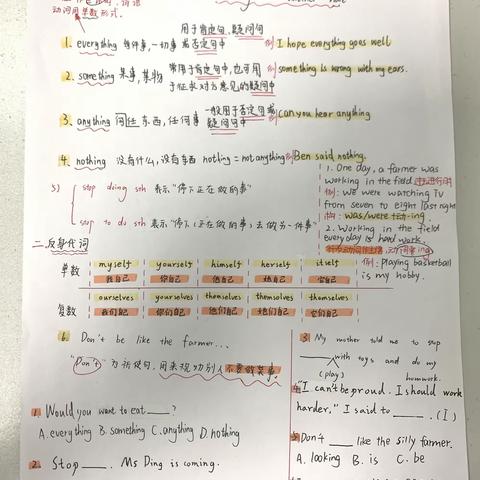 动词用单数形式.
用于肯定句、疑问句
1. everything 每件事,一切事 或否定句中 例 I hope everything goes well
2. something 某事,某物 常用于肯定句中,也可用于征求对方意见的疑问句中 例 something is wrong with my ears.
3. anything 任何东西,任何事 一般用于否定句或疑问句中 例 can you hear anything
4. nothing 没有什么,没有东西 nothing = not anything 例 Ben said nothing.
5) stop doing sth 表示"停下正在做的事"
stop to do sth 表示"停下(正在做的事)去做另一件事"
1. One day, a farmer was
working in the field
例: We were watching TV
from seven to eight last night
was/were +
2. Working in the field
everyday is hard work.
例: Playing basketball
is my hobby.
二.反身代词
单数 myself yourself himself herself itself
我自己 你自己 他自己 她自己 它自己
复数 ourselves yourselves themselves themselves themselves
我们自己 你们自己 他们自己 她们自己 它们自己
6 Don't be like the farmer...
"Don't" 为祈使句,用来 别人不要做某事
1. Would you want to eat ____?
A. everything B. something C. anything D. nothing
2. Stop ____. Ms Ding is coming.
3 My mother told me to stop
____ with toys and do my
(play) homework.
"I can't be proud. I should work
harder," I said to ____. (I)
Don't ____ like the silly farmer.
A. looking B. is C. be